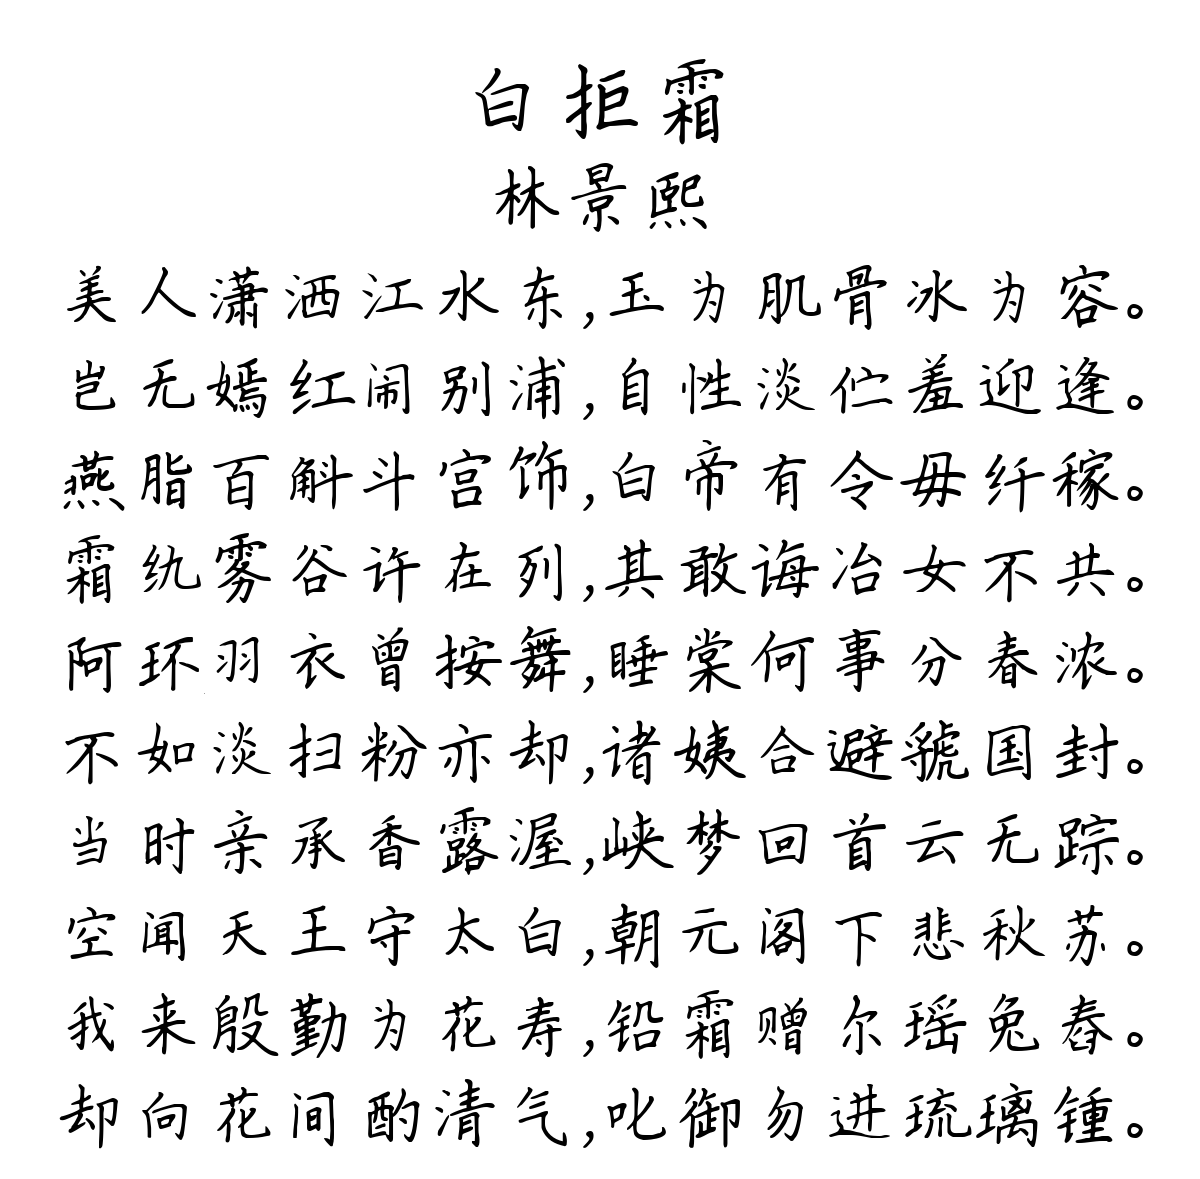 白拒霜
林景熙
美人潇洒江水东,玉为肌骨冰为容。
岂无嫣红闹别浦,自性淡伫羞迎逢。
燕脂百斛斗宫饰,白帝有令毋纤秾。
霜纨雾谷许在列,其敢诲冶女不共。
阿环羽衣曾按舞,睡棠何事分春浓。
不如淡扫粉亦却,诸姨合避虢国封。
当时亲承香露渥,峡梦回首云无踪。
空闻天王守太白,朝元阁下悲秋苏。
我来殷勤为花寿,铅霜赠尔瑶兔舂。
却向花间酌清气,叱御勿进琉璃锺。